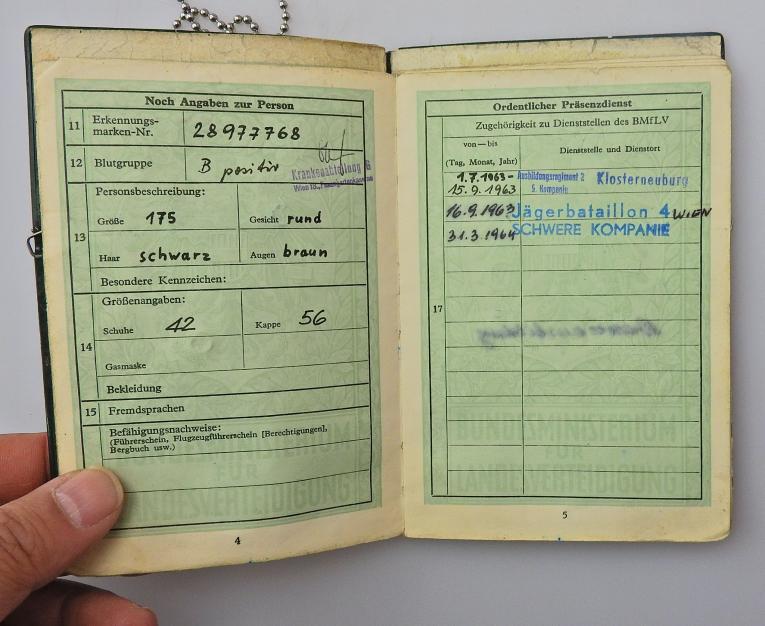 Noch Angaben zur Person
11 Erkennungs-
marken-Nr. 28977768
12 Blutgruppe B positiv
Krankenabteilung
13
Personsbeschreibung:
Größe 175 Gesicht rund
Haar schwarz Augen braun
Besondere Kennzeichen:
14
Größenangaben:
Schuhe 42 Kappe 56
Gasmaske
Bekleidung
15 Fremdsprachen
Befähigungsnachweise:
(Führerschein, Flugzeugführerschein [Berechtigungen],
Bergbuch usw.)
FÜR
LANDESVERTEIDIGUNG
4
Ordentlicher Präsenzdienst
Zugehörigkeit zu Dienststellen des BMfLV
von—bis
(Tag, Monat, Jahr) Dienststelle und Dienstort
1.7.1963- Ausbildungsregiment 2 Klosterneuburg
15.9.1963 5. Kompanie
16.9.1963 Jägerbataillon 4 WIEN
31.3.1964 SCHWERE KOMPANIE
17
FÜR
LANDESVERTEIDIGUNG
5